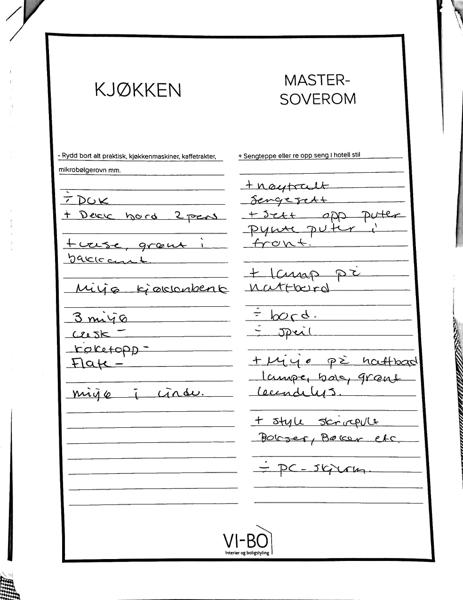 KJØKKEN
- Rydd bort alt praktisk, kjøkkenmaskiner, kaffetrakter,
mikrobølgerovn mm.
÷ Duk
+ Dekk bord 2 pers
+ vase, grønt i
bakkant
Miljø kjøkkenbenk
3 miljø
vask -
koketopp -
Flate -
miljø i vindu.
MASTER-
SOVEROM
+ Sengteppe eller re opp seng i hotell stil
+ nøytralt
sengesett
+ Sett opp puter
pynte puter i
front.
+ lampe på
nattbord
÷ bord.
÷ speil
+ Miljø på nattbord
lampe, bok, grønt
levendelys.
+ style skrivepult
Bokser, Bøker etc.
÷ PC-skjerm.
VI-BO
Interiør og boligstyling